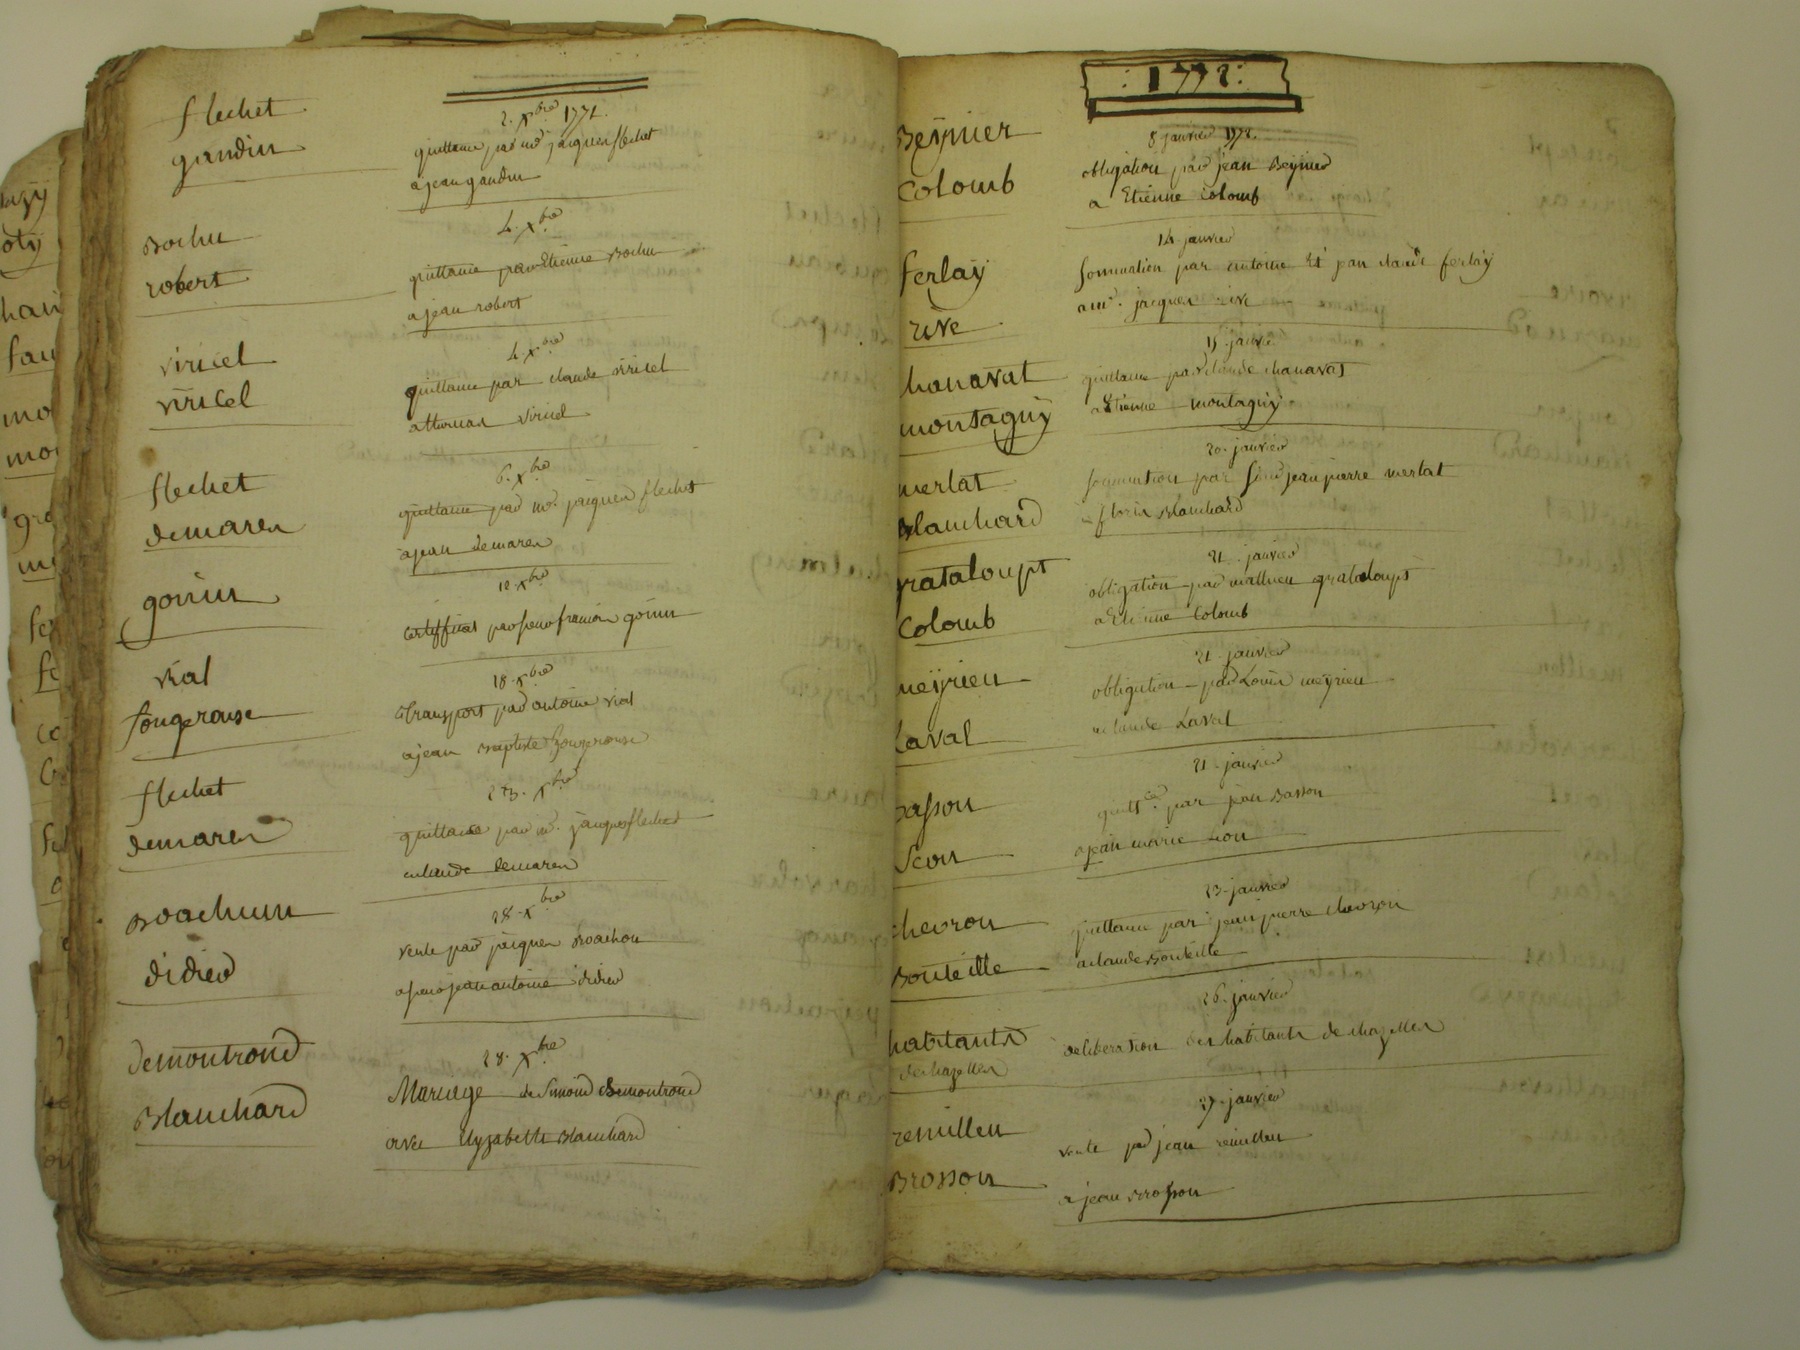 flechet
gandin
2. xbre 1771.
quittance par md jacques flechet
a jean gandin
Bochu
robert
4. xbre
quittance par Etienne Bochu
a jean robert
viricel
viricel
4. xbre
quittance par claude viricel
a thomas viricel
flechet
demaren
6. xbre
quittance par md. jacques flechet
a jean demaren
gonin
12. xbre
certifficat par françois gonin
vial
fougerouse
18. xbre
transport par antoine vial
a jean Baptiste fougerouse
flechet
demaren
23. xbre
quittance par md. jacques flechet
a claude demaren
Boachon
didier
28. xbre
vente par jacques Boachon
a jean antoine didier
demontrond
Blanchard
28. xbre
Mariage de Simond demontrond
avec Elyzabeth Blanchard
: 1772 :
Beynier
Colomb
8 janvier 1772.
obligation par jean Beynier
a Etienne Colomb
ferlay
rive
14. janvier
sommation par antoine et jean claude ferlay
a md. jacques rive
chanavat
montagny
15. janvier
quittance par claude chanavat
a Etienne montagny
merlat
Blanchard
20. janvier
sommation par jean pierre merlat
Blanchard
grataloupt
Colomb
21. janvier
obligation par mathieu grataloupt
a Etienne Colomb
meyrieu
Laval
21. janvier
obligation par Louis meyrieu
a claude Laval
Basson
Seon
21. janvier
quitt.ce par jean Basson
a jean marie seon
chevron
Bouteille
23. janvier
quittance par jean pierre chevron
a claude Bouteille
habitants
de chazelles
26. janvier
deliberation des habitants de chazelles
remillieu
Brosson
27. janvier
vente par jean remillieu
a jean Brosson